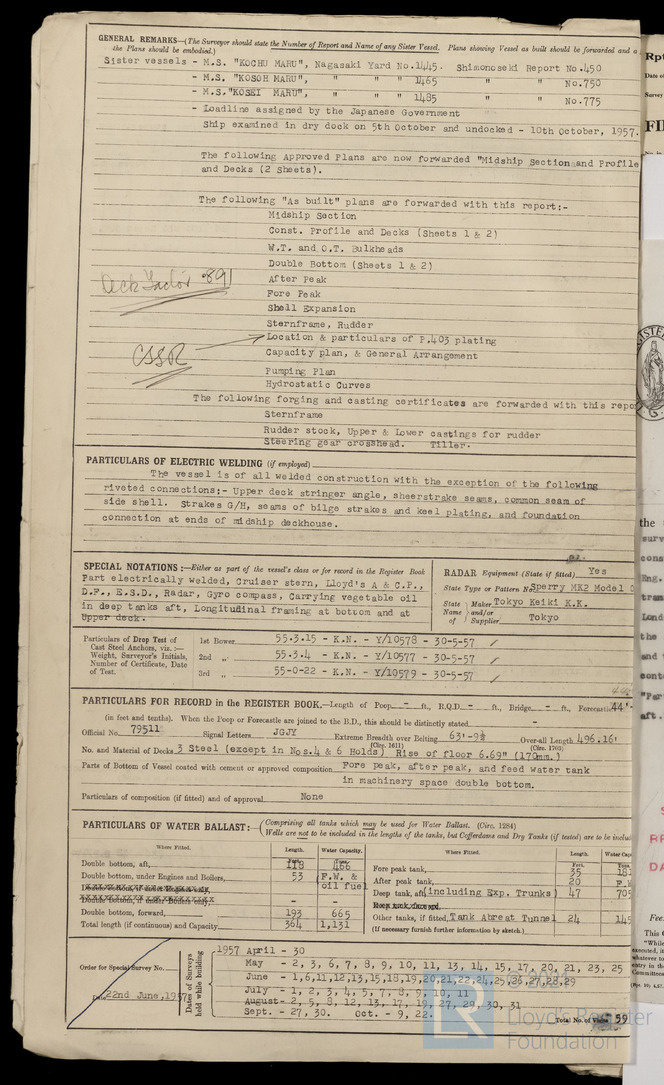 GENERAL REMARKS—(The Surveyor should state the Number of Report and Name of any Sister Vessel. Plans showing Vessel as built should be forwarded and a
the Plans should be embodied.)
Sister vessels - M.S. "KOCHU MARU", Nagasaki Yard No.1445. Shimonoseki Report No.450
- M.S. "KOSOH MARU", " " " 1465 " " No.750
- M.S."KOSEI MARU", " " " 1485 " " No.775
- Loadline assigned by the Japanese Government
Ship examined in dry dock on 5th October and undocked - 10th October, 1957.
The following Approved Plans are now forwarded "Midship Section and Profile
and Decks (2 Sheets).
The following "As built" plans are forwarded with this report:-
Midship Section
Const. Profile and Decks (Sheets 1 & 2)
W.T. and O.T. Bulkheads
Double Bottom (Sheets 1 & 2)
Deck Factor .891
After Peak
Fore Peak
Shell Expansion
Sternframe, Rudder
Location & particulars of P.403 plating
CSSR
Capacity plan, & General Arrangement
Pumping Plan
Hydrostatic Curves
The following forging and casting certificates are forwarded with this repo
Sternframe
Rudder stock, Upper & Lower castings for rudder
Steering gear crosshead. Tiller.
PARTICULARS OF ELECTRIC WELDING (if employed)
The vessel is of all welded construction with the exception of the following
riveted connections:- Upper deck stringer angle, sheerstrake seams, common seam of
side shell. Strakes G/H, seams of bilge strakes and keel plating, and foundation
connection at ends of midship deckhouse.
SPECIAL NOTATIONS:—Either as part of the vessel's class or for record in the Register Book
Part electrically welded, Cruiser stern, Lloyd's A & C.P.,
D.F., E.S.D., Radar, Gyro compass, Carrying vegetable oil
in deep tanks aft, Longitudinal framing at bottom and at
Upper deck.
RADAR Equipment (State if fitted) Yes
State Type or Pattern No Sperry MK2 Model 0
State Name of Maker and/or Supplier Tokyo Keiki K.K.
Tokyo
Particulars of Drop Test of
Cast Steel Anchors, viz.:—
Weight, Surveyor's Initials,
Number of Certificate, Date
of Test.
1st Bower 55-3-15 - K.N. - Y/10578 - 30-5-57
2nd „ 55-3-4 - K.N. - Y/10577 - 30-5-57
3rd „ 55-0-22 - K.N. - Y/10579 - 30-5-57
PARTICULARS FOR RECORD in the REGISTER BOOK.—Length of Poop - ft., R.Q.D. - ft., Bridge - ft., Forecastle 44'-
(in feet and tenths). When the Poop or Forecastle are joined to the B.D., this should be distinctly stated. -
Official No. 79511 Signal Letters JGJY Extreme Breadth over Belting 63'-9¾ Over-all Length 496.16'
(Circ. 1611) (Circ. 1703)
No. and Material of Decks 3 Steel (except in Nos.4 & 6 Holds) Rise of floor 6.69" (170mm.)
Parts of Bottom of Vessel coated with cement or approved composition Fore peak, after peak, and feed water tank
in machinery space double bottom.
Particulars of composition (if fitted) and of approval None
PARTICULARS OF WATER BALLAST:—(Comprising all tanks which may be used for Water Ballast. (Circ. 1284)
Wells are not to be included in the lengths of the tanks, but Cofferdams and Dry Tanks (if tested) are to be inclu
Where Fitted. Length. Water Capacity.
Feet. Tons.
Double bottom, aft, 118 466
Double bottom, under Engines and Boilers, 53 F.W. &
oil fuel
Double bottom, if under Boilers only, - -
Double bottom, forward, 193 665
Total length (if continuous) and Capacity 364 1,131
Where Fitted. Length. Water Cap
Feet. Tons
Fore peak tank, 35 181
After peak tank, 20 F.W
Deep tank, aft (including Exp. Trunks) 47 705
Deep tank, forward,
Other tanks, if fitted, Tank Abreat Tunnel 24 145
(If necessary furnish further information by sketch.)
Order for Special Survey No.
Dated 22nd June, 1957
Dates of Surveys held while building
1957 April - 30
May - 2, 3, 6, 7, 8, 9, 10, 11, 13, 14, 15, 17, 20, 21, 23, 25
June - 1,6,11,12,13,15,18,19,20,21,22,24,25,26,27,28,29
July - 1, 2, 3, 4, 5, 7, 8, 9, 10, 11
August- 2, 5, 8, 12, 13, 17, 19, 27, 29, 30, 31
Sept. - 27, 30. Oct. - 9, 22.
Total No. of Visits 59
Lloyd's Register
Foundation